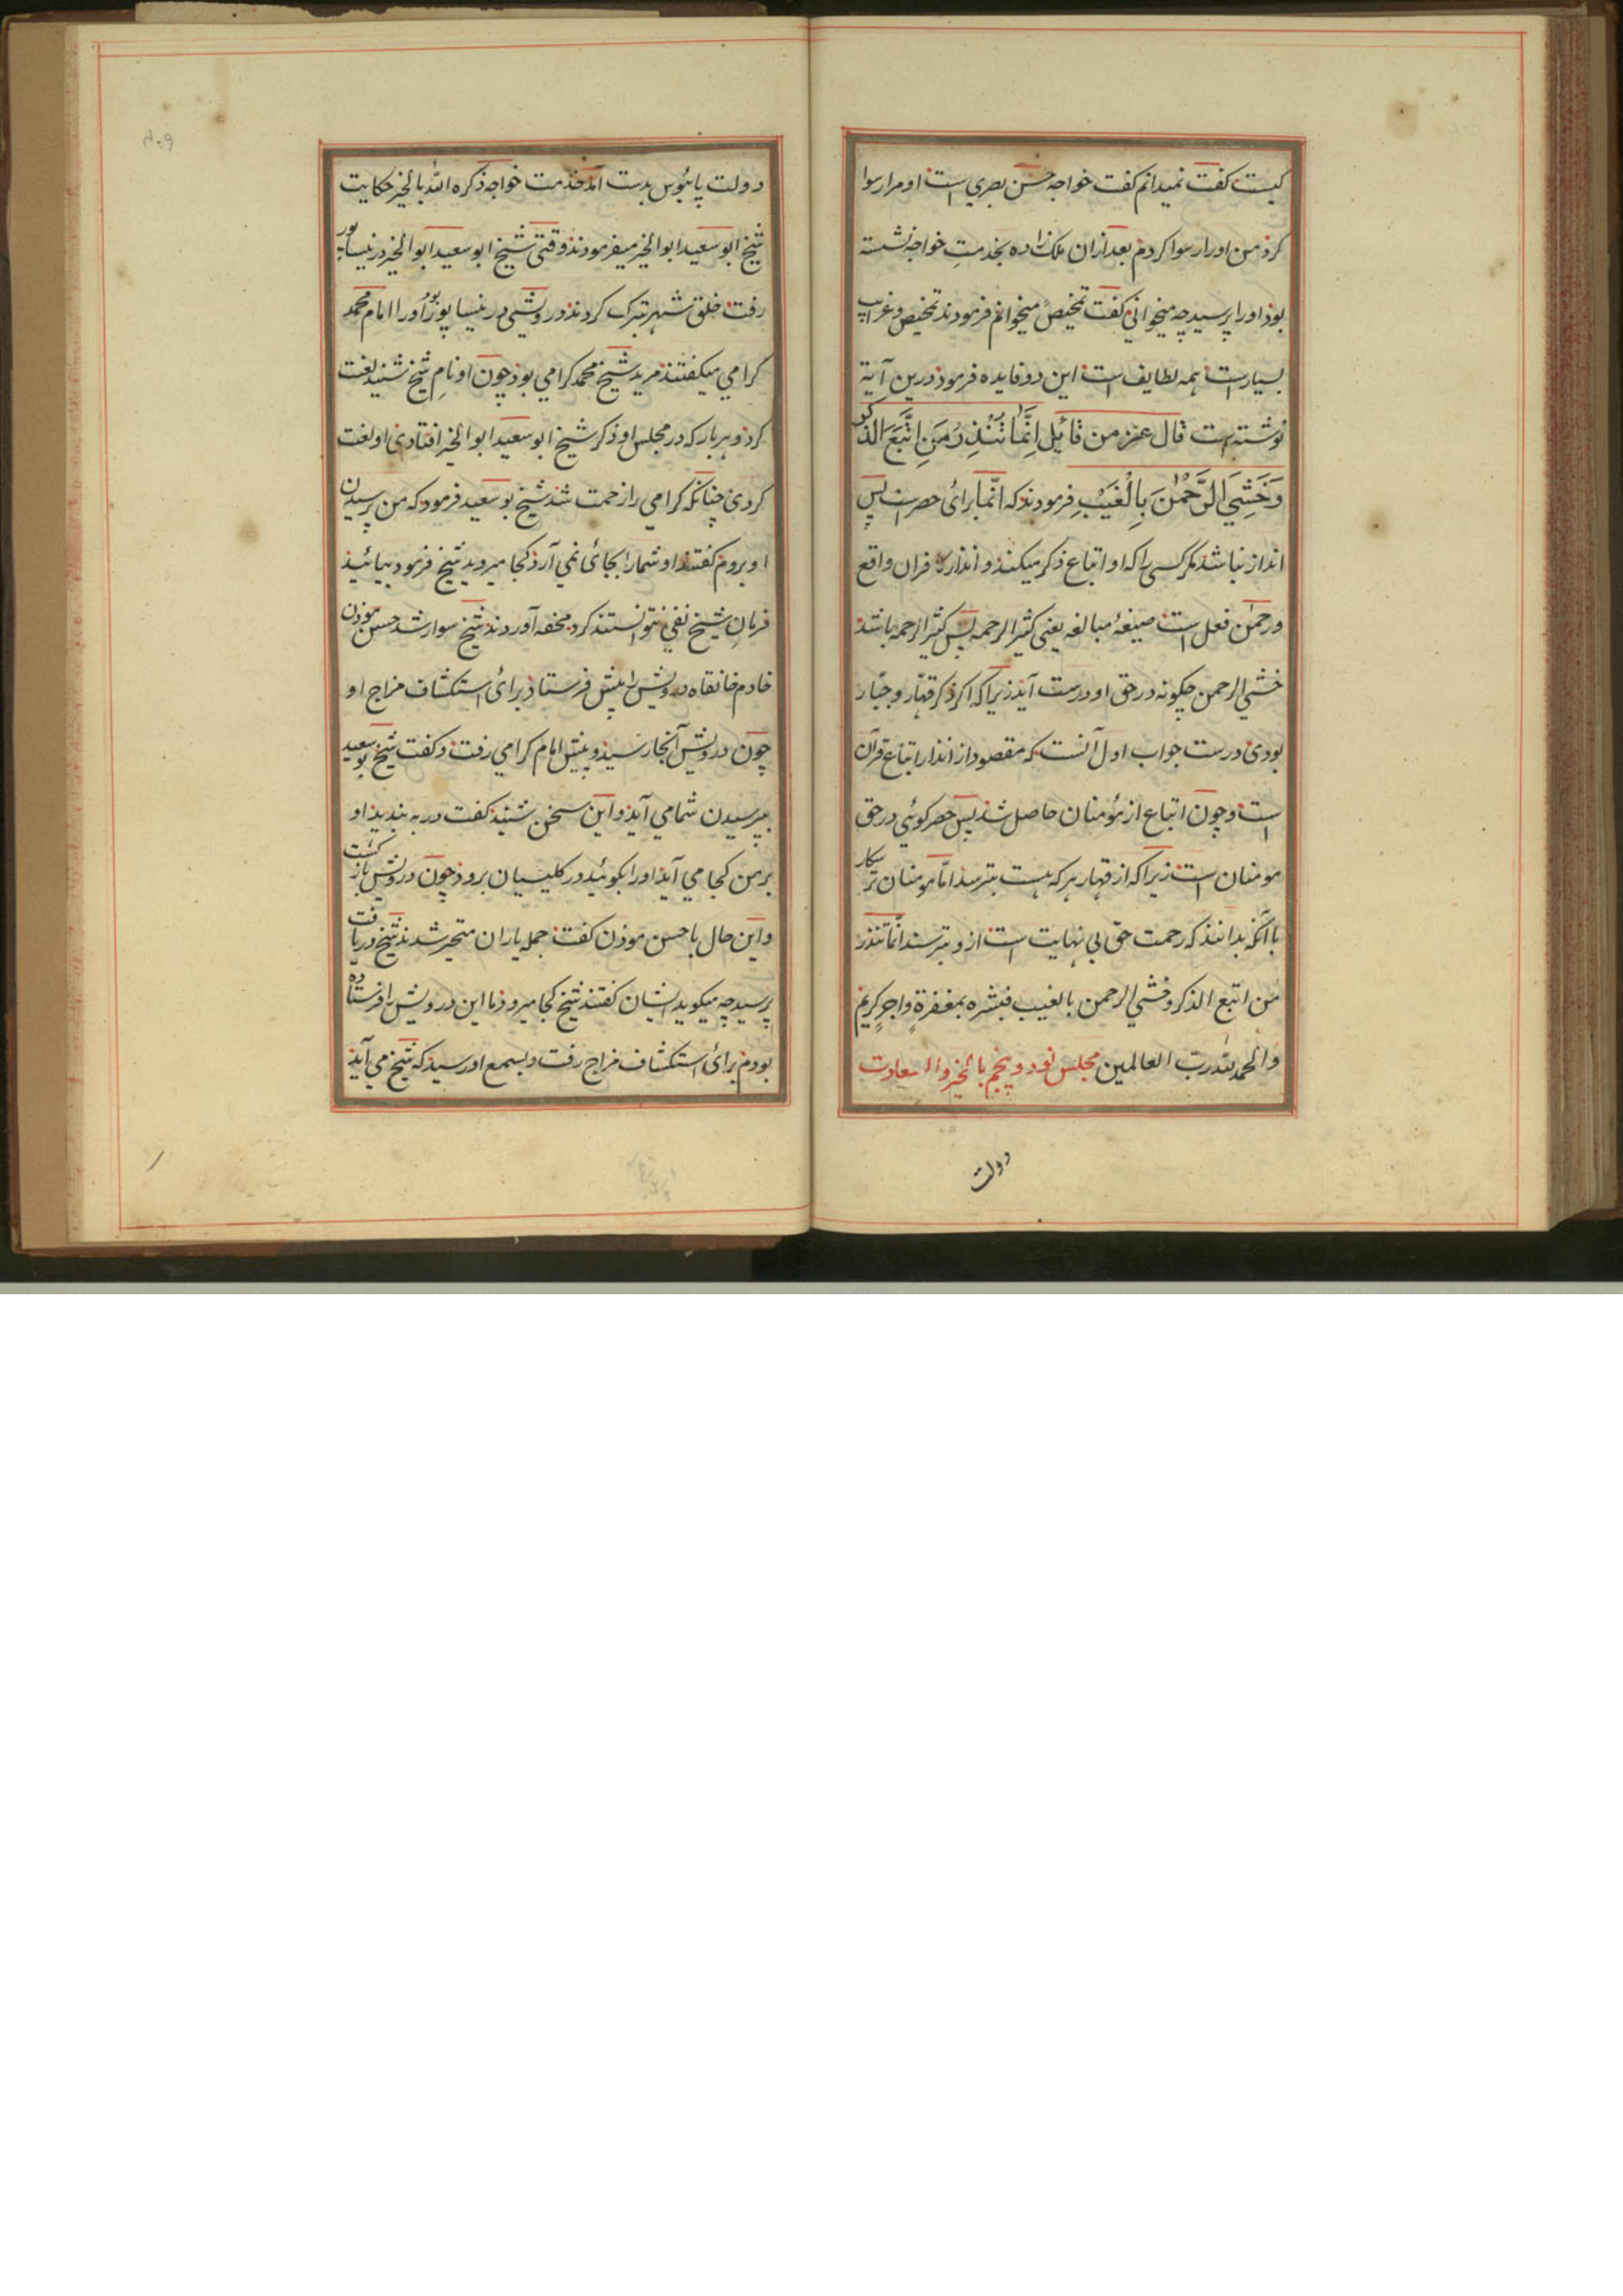 کیست کفت نمیدانم کفت خواجه حسن بصري است او مرا رسوا
کرد من او را رسوا کردم بعد ازان ملک زاده بخدمتِ خواجه نشسته
بود او را پرسید چه میخوانی کفت تلخیص میخوانم فرمودند تلخیص وغرایب
بسیار است همه لطایف است این دو فایده فرمود درین آیة
نوشته است قال عز من قائیل اِنَّمَا تُنْذِرُ مَنِ اتَّبَعَ الذّکر
وَخَشِيَ الرَّحْمٰنَ بِالْغَيْبِ فرمودند که انّما برائ حصر است پس
انذار نباشد مکر کسی را که او اتباع ذکر میکند و انذار کافران واقع
و رحمٰن فعل است صیغۀ مبالغه یعنی کثیر الرحمه پس کثیر الرحمه باشد
خشي الرحمن چکونه در حق او درست آید زیرا که اکر ذکر قهّار و جبّار
بودی درست جواب اول آنست که مقصود از انذار اتباع قرآن
است و چون اتباع از مؤمنان حاصل شد پس حصر کوئي در حق
مومنان است زیرا که از قهار هر که هست بترسد امّا مومنان ترسکار
باانکه بدانند که رحمت حق بی نهایت است ازو بترسند انّما تنذر
من اتبع الذکر و خشي الرحمن بالغیب فبشره بمغفرةٍ واجرٍ کریم
والحمد لله رب العالمین مجلس نود و پنجم بالخیر والسعادت
دولت
دولت پائبوس بدست آمد خدمت خواجه ذکره الله بالخیر حکایت
شیخ ابو سعید ابو الخیر میفرمودند وقتی شیخ ابو سعید ابو الخیر در نیساپور
رفت خلق شهر تبرک کردند درویشی در نیساپور بود او را امام محمد
کرامي میکفتند مرید شیخ محمد کرامي بود چون او نامِ شیخ شنید لعنت
کرد و هر بار که در مجلس او ذکر شیخ ابو سعید ابو الخیر افتادی او لعنت
کردی چنانکه کرامي را زحمت شد شیخ بو سعید فرمود که من پرسیدن
او بروم کفتند او شما را بجائ نمی آرد کجا میروید شیخ فرمود بیائید
فرمانِ شیخ نفي نتوانستند کرد محفه آوردند شیخ سوار شد حسن موذن
خادم خانقاه درویش را پیش فرستاد برائ استکشاف مزاج او
چون درویش آنجا رسید و پیش امام کرامي رفت و کفت شیخ بو سعید
بپرسیدن شما مي آید او این سخن شنید کفت در به بندید او
بر من کجا می آید او را بکوئید در کلیسیان برود چون درویش باز کشت
و این حال با حسن موذن کفت جمله یاران متحیر شدند شیخ دریافت
پرسید چه میکوید ایشان کفتند شیخ کجا میرود ما این درویش را فرستاده
بودم برائ استکشاف مزاج رفت و بسمع او رسید که شیخ می آید